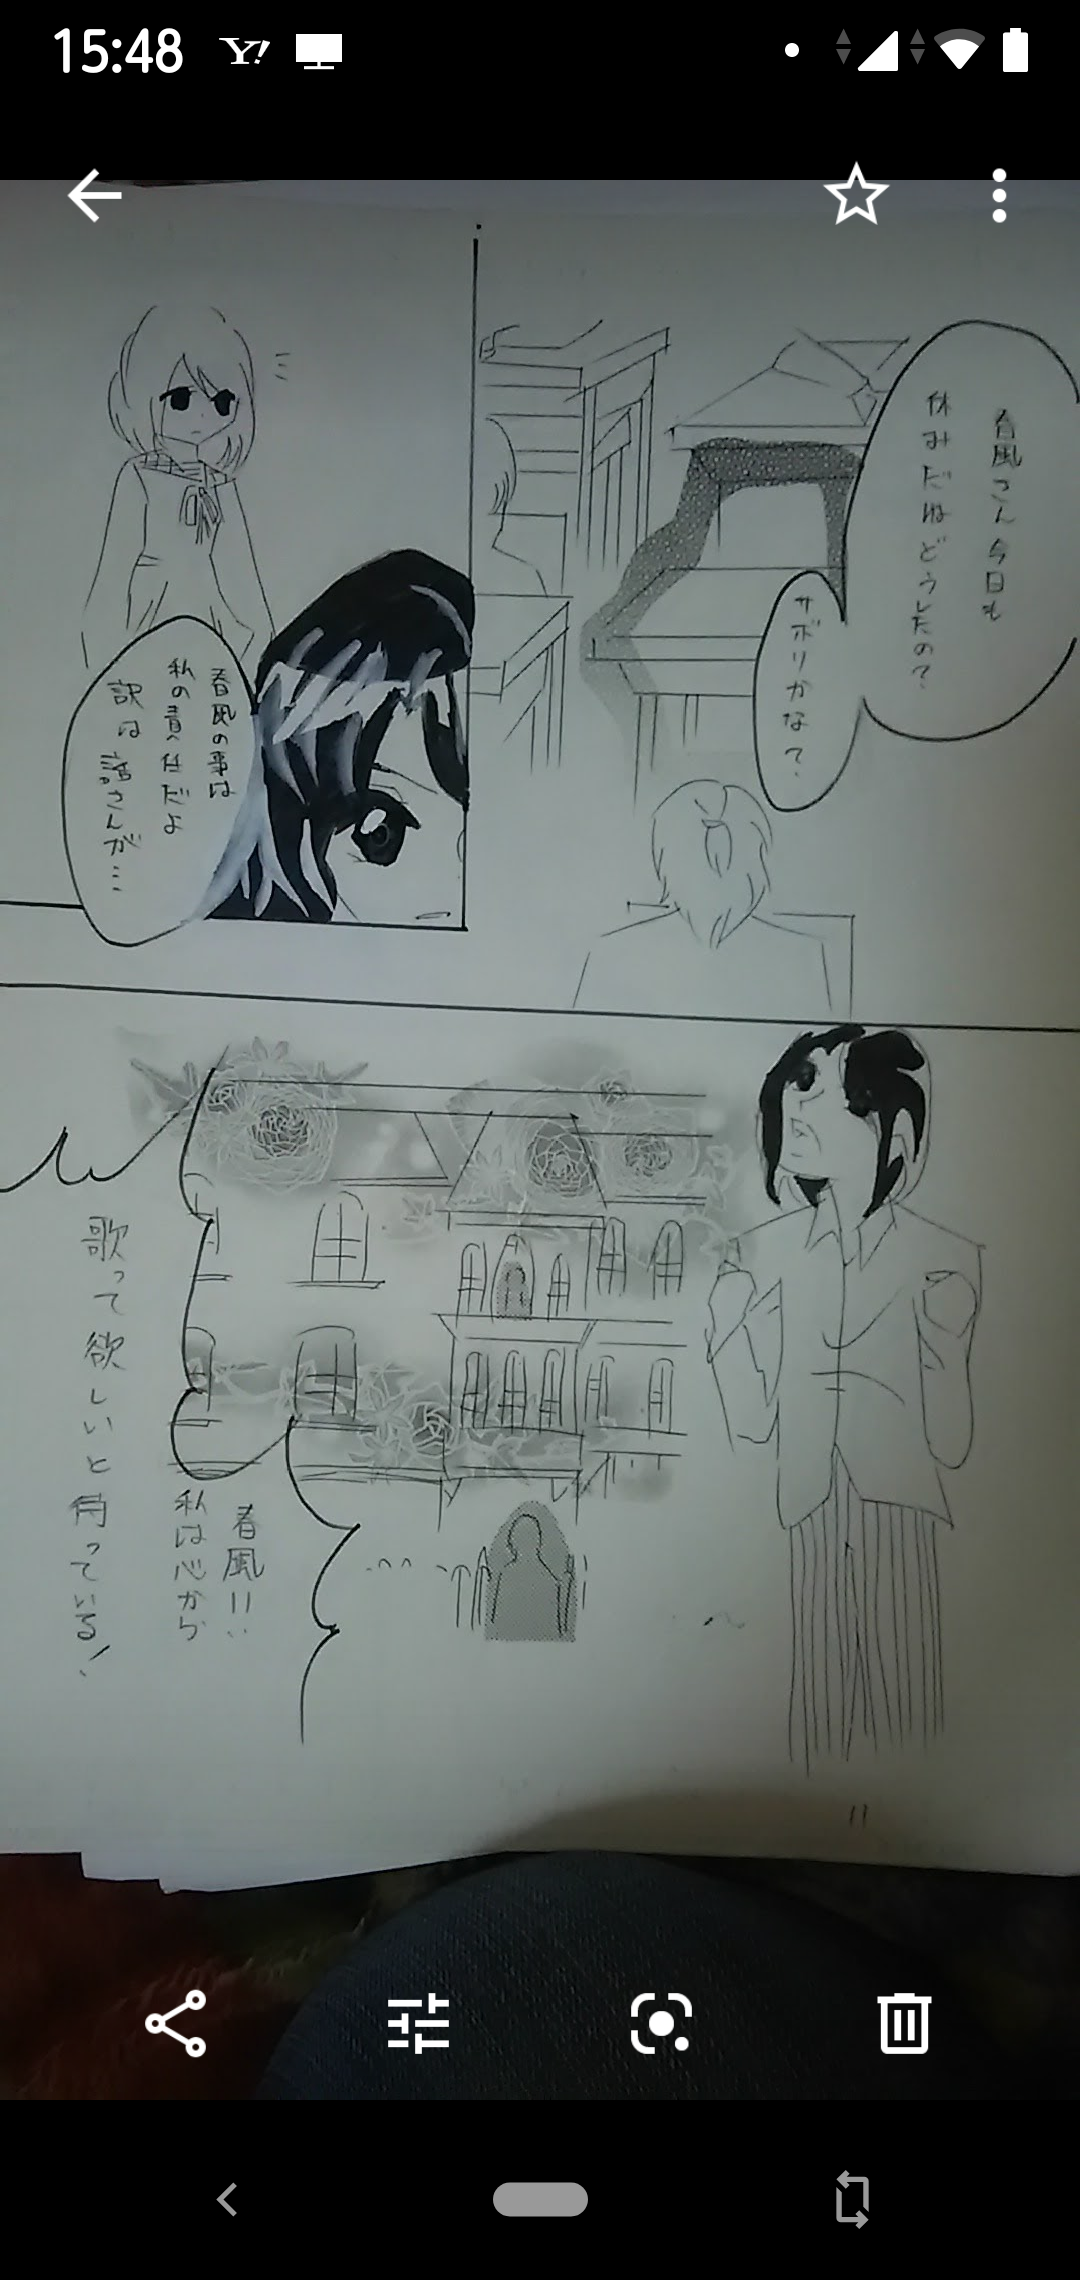 15:48
Y!
春風さん今日も
休みだねどうしたの?
サボリかな?
春風の事は
私の責任だよ
訳は話さんが…
春風!!
私は心から
歌って欲しいと
待っている!
11